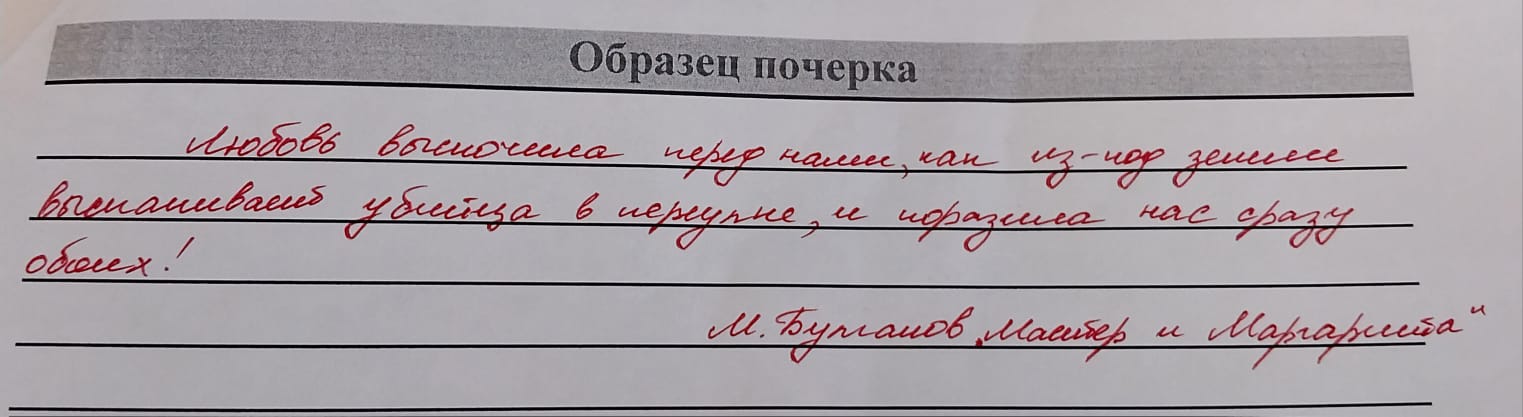 Образец почерка
Любовь выскочила перед нами, как из-под земли
выскакивает убийца в переулке, и поразила нас сразу
обоих!
М. Булгаков „Мастер и Маргарита“